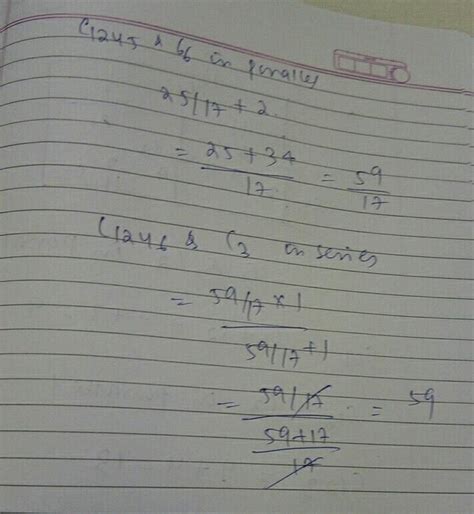 C1245 & C6 in parallel
25/17 + 2
= 25 + 34 / 17 = 59 / 17
C1246 & C3 in series
= 59/17 × 1
59/17 + 1
= 59/17 = 59
59+17
17